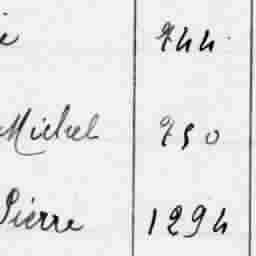 e 744
Michel 750
Pierre 1294